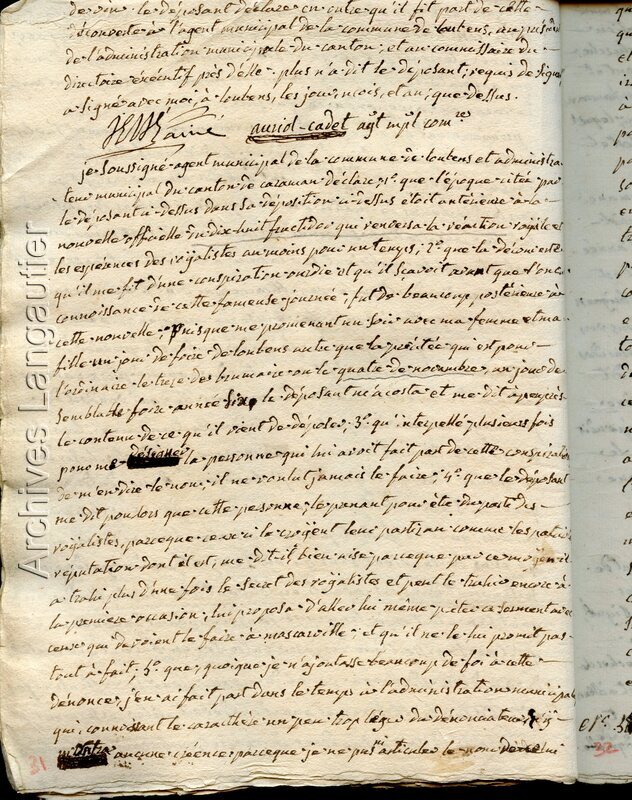 de vin. le déposant déclare en outre qu'il fit part de cette
découverte à l'agent municipal de la commune de loubens,
de l'administration municipale du canton, et au commissaire du
directoire éxécutif près d'elle. plus n'a dit le déposant; requis de signer
a signé avec moi, à loubens, les jour, mois, et an, que dessus.
auriol-cadet agt mpl com.res
je soussigné agent municipal de la commune de loubens et administra-
teur municipal du canton de caraman déclare, 1º que l'époque citée par
le déposant ci dessus dans sa déposition ci dessus étoit antérieure à la
nouvelle officielle du dix huit fructidor qui renversa la réaction royale et
les espérances des roÿalistes au moins pour un temps; 2º que la découverte
qu'il me fit d'une conspiration ourdie et qu'il sçavoit avant que l'on eut
connoissance de cette fameuse journée, fut de beaucoup postérieure à
cette nouvelle, puisque me promenant un soir avec ma femme et ma
fille un jour de foire de loubens autre que la précitée qui est pour
l'ordinaire le treze de brumaire ou le quatre de novembre, un jour de
semblable foire année le déposant m'acosta et me dit à peu près
le contenu de ce qu'il vient de déposer; 3º qu'interpellé plusieurs fois
pour me la personne qui lui avoit fait part de cette conspiration
de m'en dire le nom, il ne voulut jamais le faire; 4º que le déposant
me dit pour lors que cette personne, le prenant pour être du parti des
roÿalistes, parceque ceux ci le croÿent leur partizan comme les
réputation dont il est, me dit-il, bien aise parceque par ce moÿen il
a trahi plus d'une fois le secret des roÿalistes et peut le trahir encore à
la première occasion, lui proposa d'aller lui même prêter ce serment avec
ceux qui devoient le faire à mascarville, et qu'il ne le lui promit pas
tout à fait; 5º que, quoique je n'ajoutasse beaucoup de foi à cette
dénonce, j'en ai fait part dans le temps à l'administration municipale
qui, connoissant le caractère un peu trop léger du dénonciateur
aucune créence parceque je ne pus articuler le nom de celui
31
32
Archives Langautier